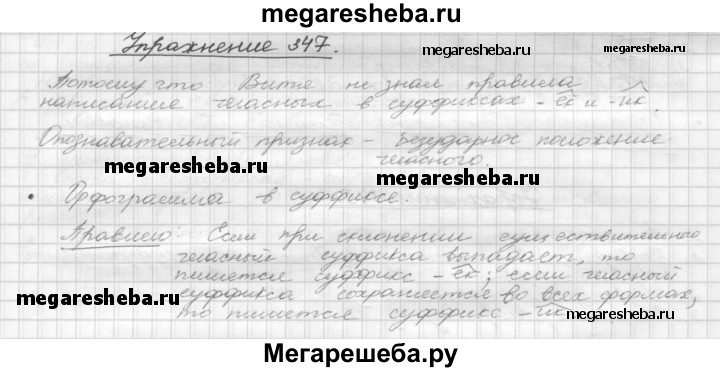 megaresheba.ru
Упражнение 347.
megaresheba.ru
megaresheba.ru
Потому что Витя не знал правила
написание гласных в суффиксах -ек и -ик.
Опознавательный признак - безударное положение
гласного.
megaresheba.ru
megaresheba.ru
• Орфограмма в суффиксе.
Правило: Если при склонении существительного
гласный суффикса выпадает, то
пишется суффикс -ек; если гласный
суффикса сохраняется во всех формах,
то пишется суффикс -ик.
megaresheba.ru
megaresheba.ru
Мегарешеба.ру